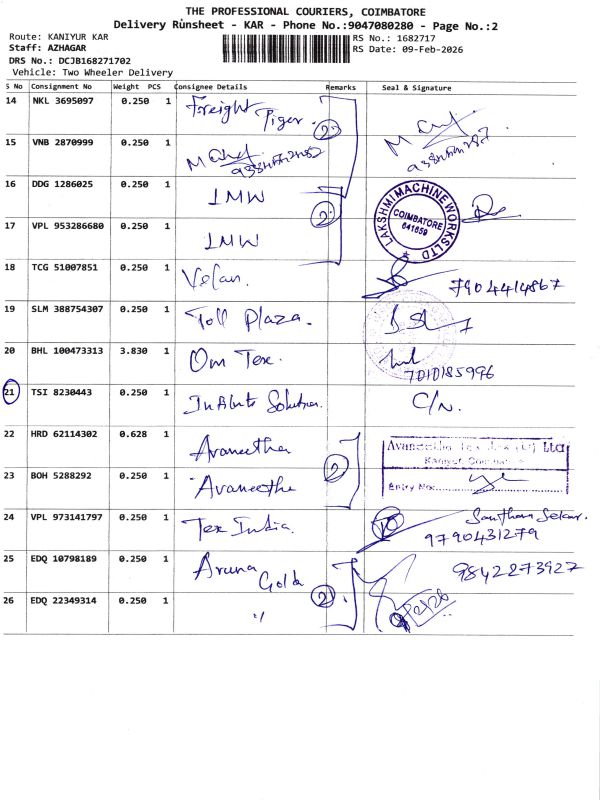 THE PROFESSIONAL COURIERS, COIMBATORE
Delivery Runsheet - KAR - Phone No.:9047080280 - Page No.:2
Route: KANIYUR KAR
RS No.: 1682717
Staff: AZHAGAR
RS Date: 09-Feb-2026
DRS No.: DCJB168271702
Vehicle: Two Wheeler Delivery
S No Consignment No Weight PCS Consignee Details Remarks Seal & Signature
14 NKL 3695097 0.250 1 Freight Tiger 2
15 VNB 2870999 0.250 1
16 DDG 1286025 0.250 1 LMW 2
LAKSHMI MACHINE WORKS LTD
COIMBATORE
641659
17 VPL 953286680 0.250 1 LMW
18 TCG 51007851 0.250 1 7904414867
19 SLM 388754307 0.250 1 Toll Plaza.
20 BHL 100473313 3.830 1 Om Tex. 7010185996
21 TSI 8230443 0.250 1 C/N.
22 HRD 62114302 0.628 1 Avaneetha 2
Entry No:
23 BOH 5288292 0.250 1 Avaneetha
24 VPL 973141797 0.250 1 Tex India. Santhana Sekar.
9790431279
25 EDQ 10798189 0.250 1 Aruna Gold 2 9842273927
26 EDQ 22349314 0.250 1 〃